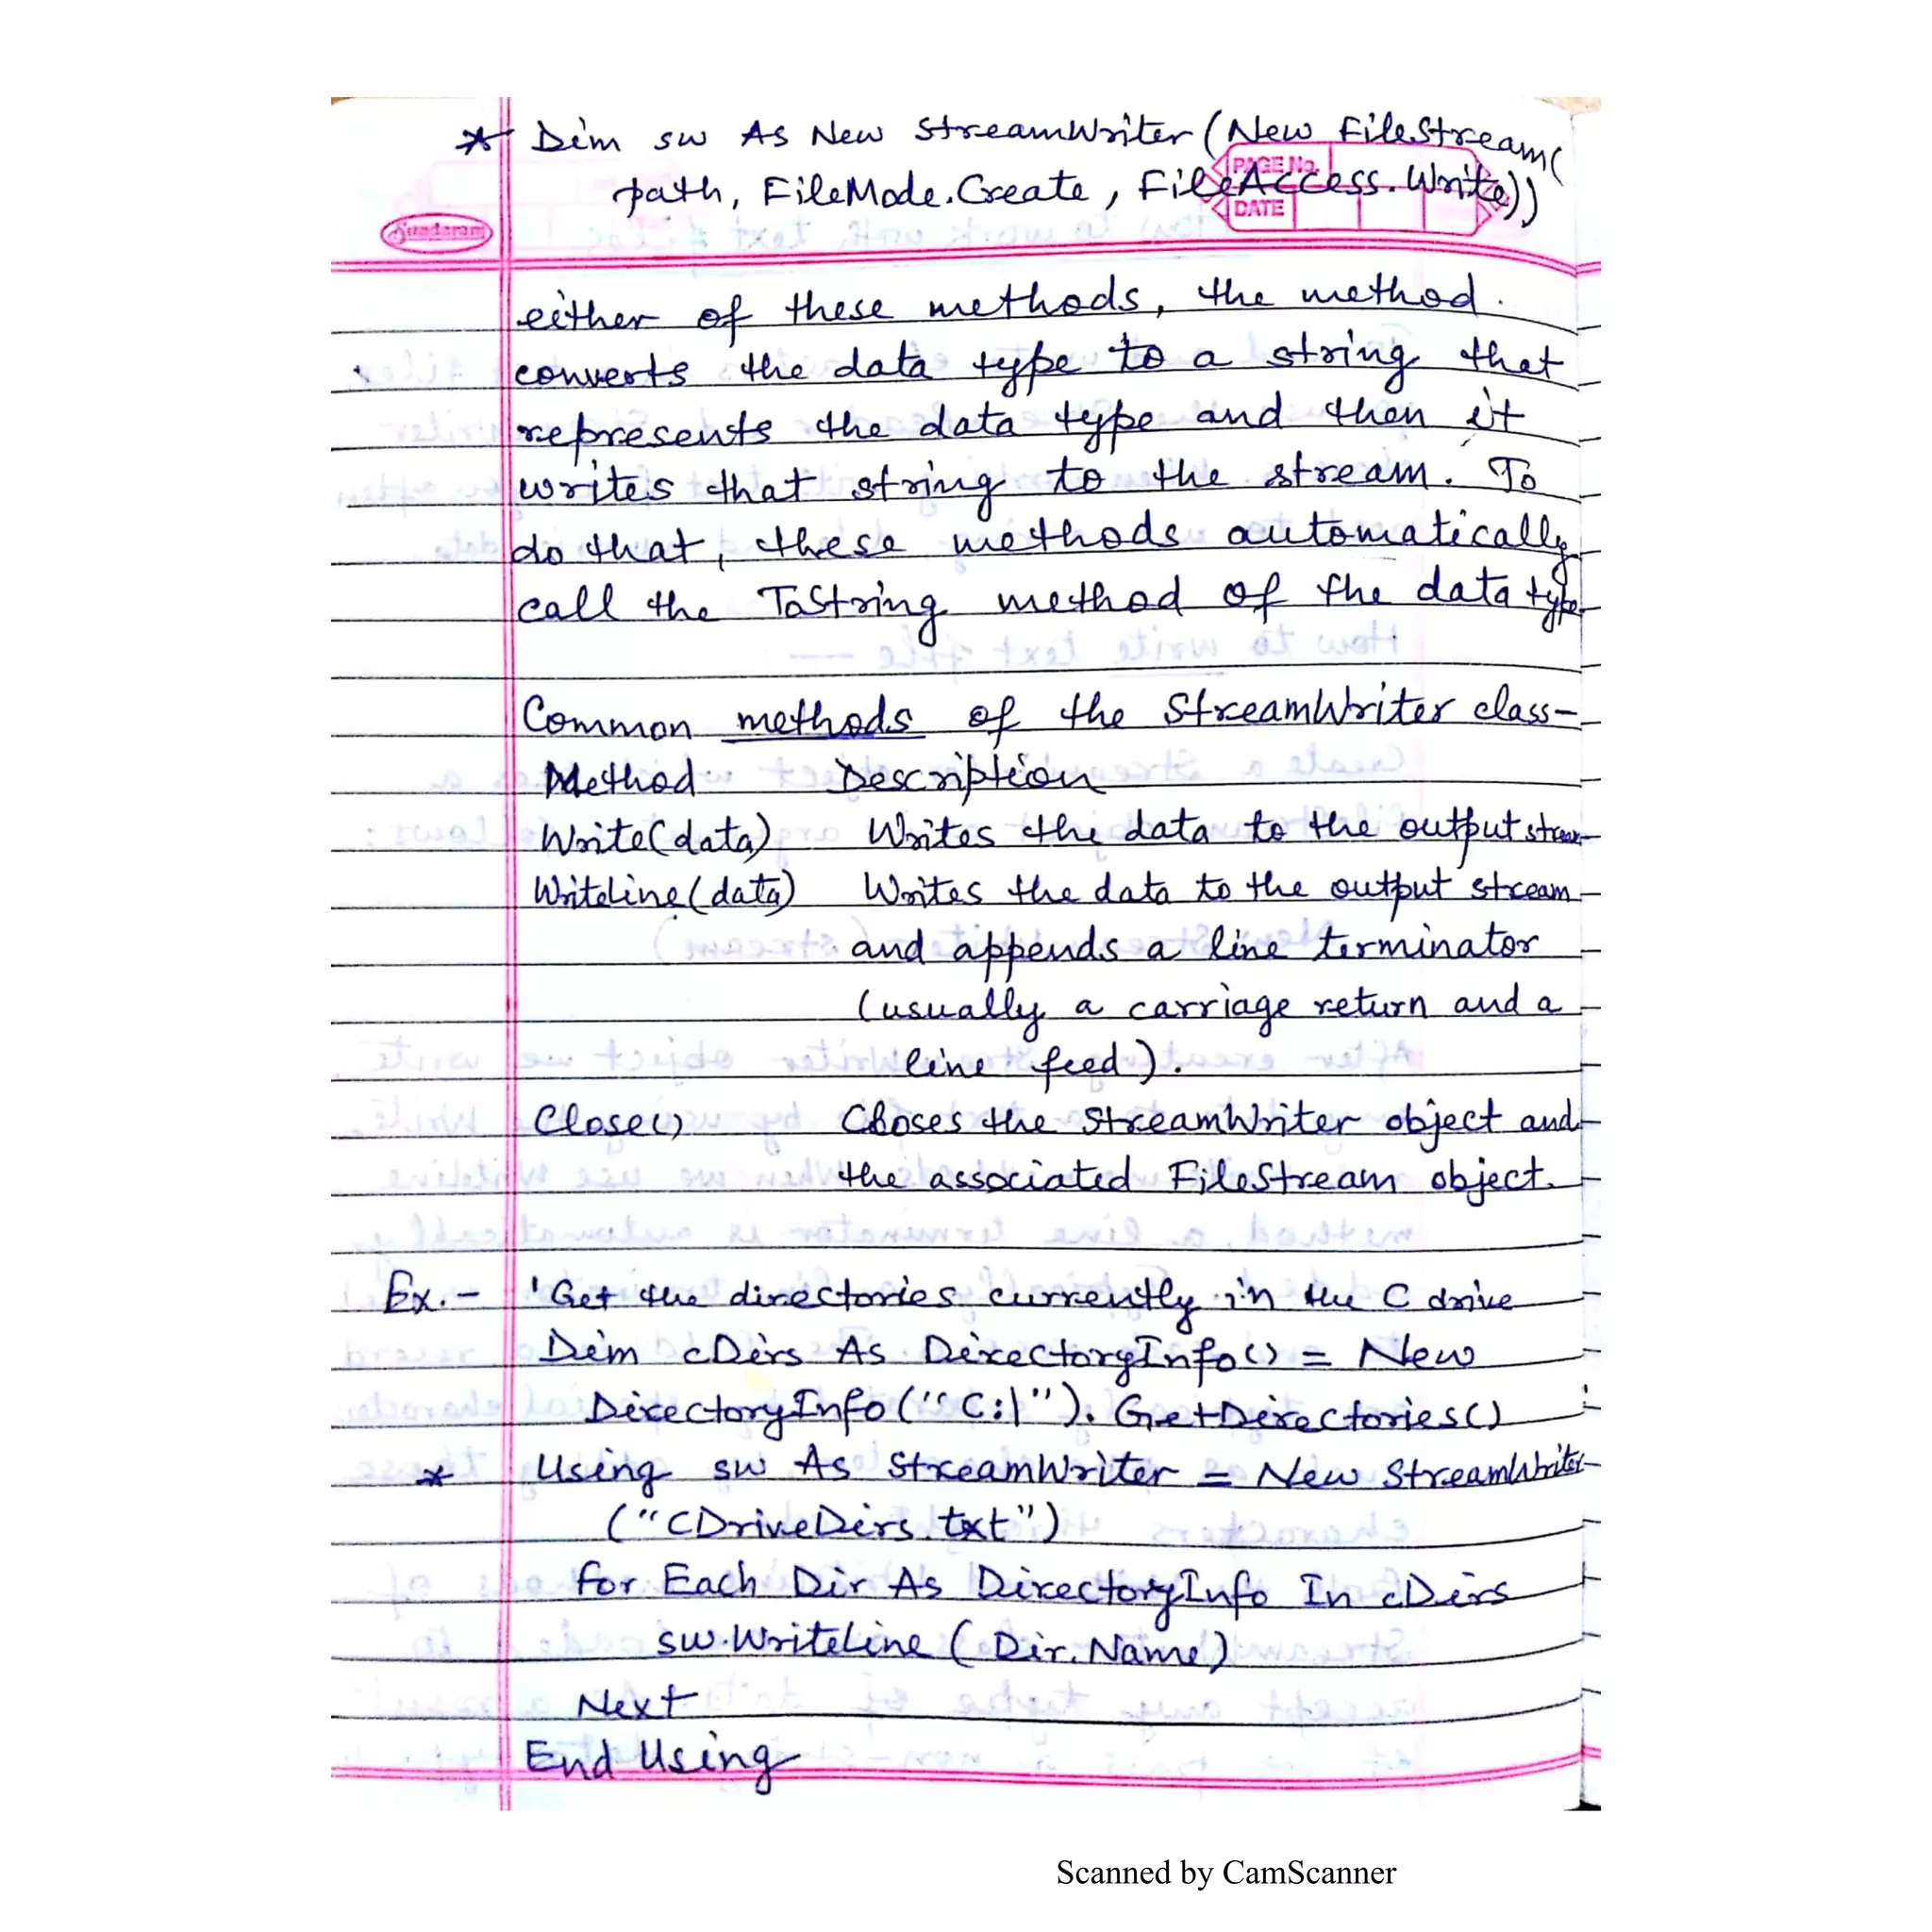 * Dim sw As New StreamWriter(New FileStream(
path, FileMode.Create, FileAccess.Write))
PAGE No.
DATE
Sundaram
either of these methods, the method
converts the data type to a string that
represents the data type and then it
writes that string to the stream. To
do that, these methods automatically
call the ToString method of the data type
Common methods of the StreamWriter class-
Method Description
Write(data) Writes the data to the output stream
Writeline(data) Writes the data to the output stream
and appends a line terminator
(usually a carriage return and a
line feed).
Close() Closes the StreamWriter object and
the associated FileStream object.
Ex.- 'Get the directories currently in the C drive
Dim cDirs As DirectoryInfo() = New
DirectoryInfo("C:\").GetDirectories()
* Using sw As StreamWriter = New StreamWriter
("CDriveDirs.txt")
for Each Dir As DirectoryInfo In cDirs
sw.WriteLine(Dir.Name)
Next
End Using
Scanned by CamScanner